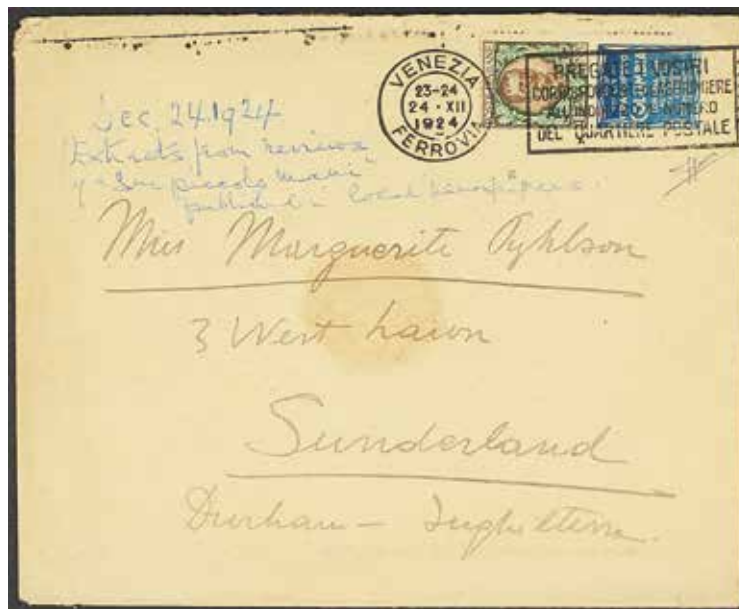 VENEZIA
23-24
24 · XII
1924
FERROVIA
PREGATE I VOSTRI
CORRISPONDENTI DI AGGIUNGERE
ALL'INDIRIZZO IL NUMERO
DEL QUARTIERE POSTALE
Dec. 24. 1924
Extracts from reviews
piccole mani
published in local newspapers.
Miss Marguerite
3 West Lawn
Sunderland
Durham — Inghilterra